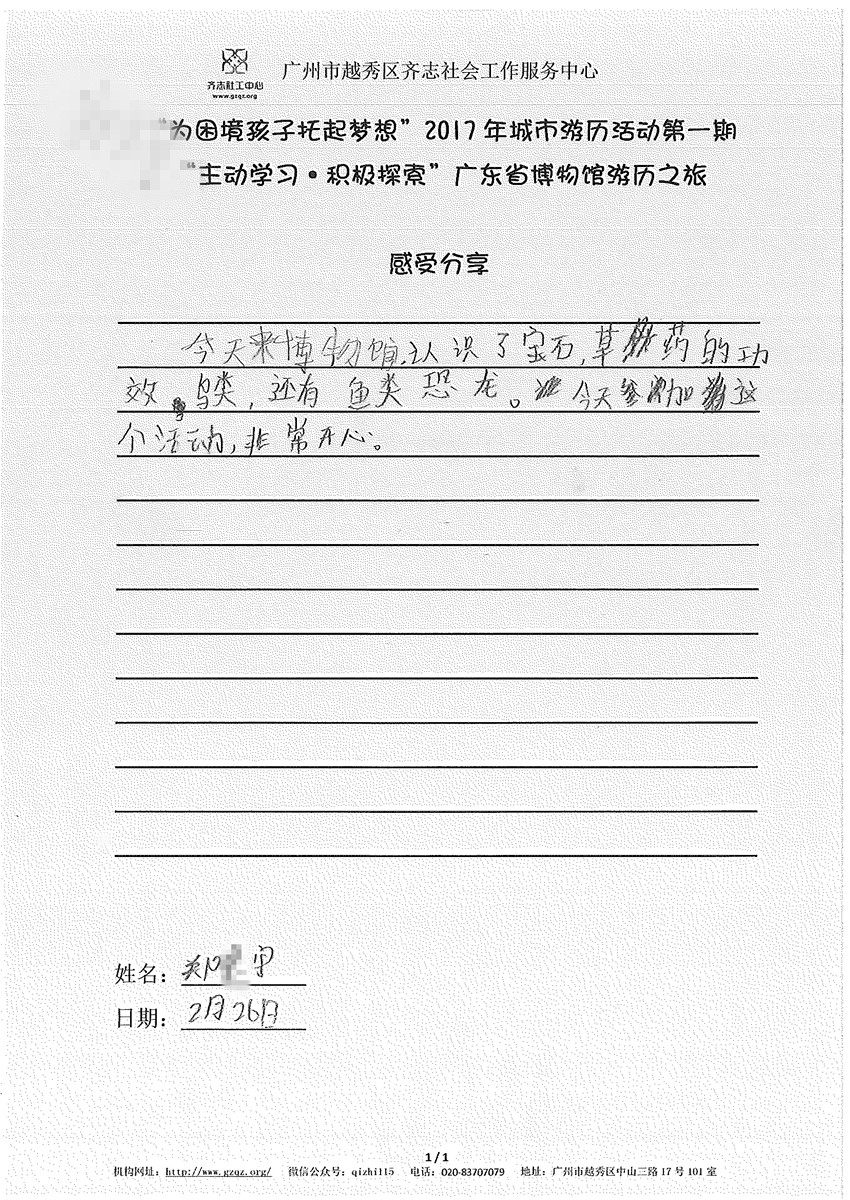 齐志社工中心
www.gzqz.org
广州市越秀区齐志社会工作服务中心
“为困境孩子托起梦想”2017年城市游历活动第一期
“主动学习·积极探索”广东省博物馆游历之旅
感受分享
今天来博物馆认识了宝石,草药的功
效,鸟类,还有鱼类恐龙。今天参加这
个活动,非常开心。
姓名:郑 宇
日期:2月26日
1 / 1
机构网址:http://www.gzqz.org/ 微信公众号:qizhi115 电话:020-83707079 地址:广州市越秀区中山三路17号101室